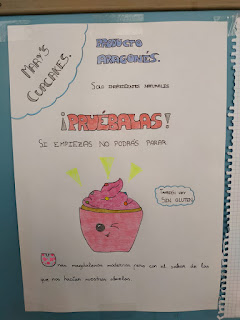 MARY'S
CUPCAKES.
PRODUCTO
ARAGONÉS.
SON INGREDIENTES NATURALES
¡PRUÉBALAS!
SI EMPIEZAS NO PODRÁS PARAR
TAMBIÉN HAY
SIN GLUTEN
Unas magdalenas modernas pero con el sabor de las
que nos hacían nuestras abuelas.